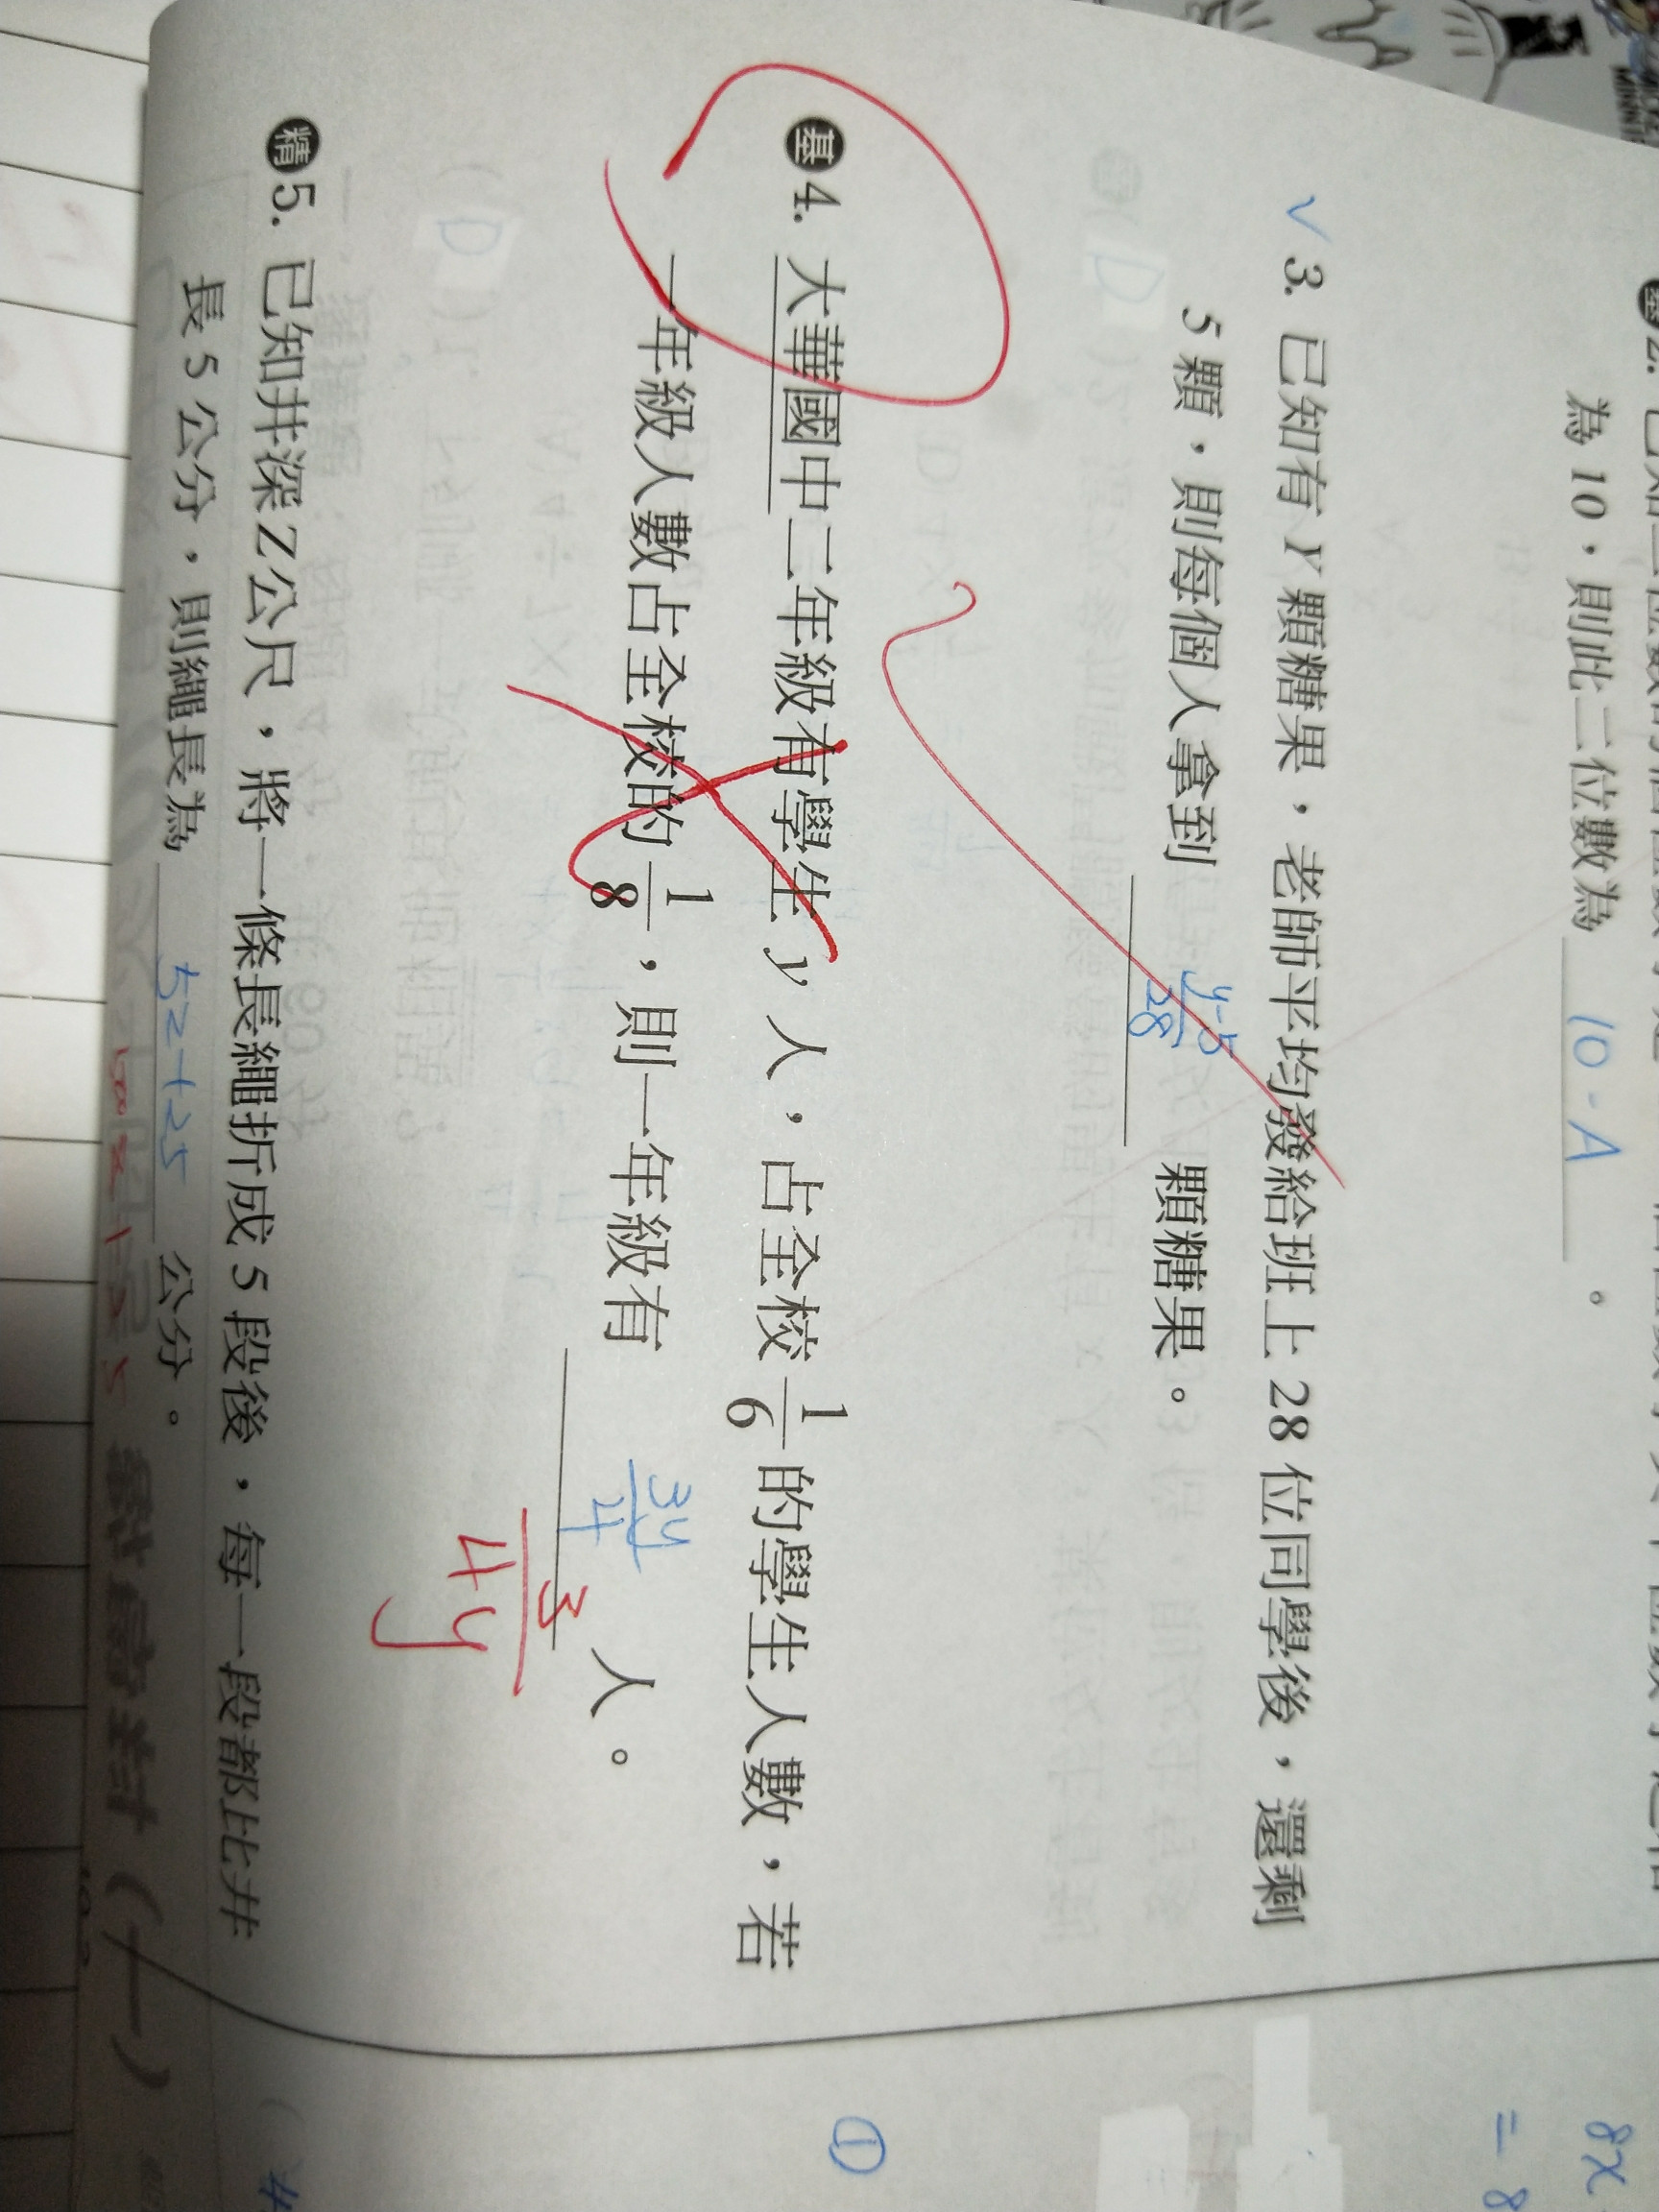 為 10，則此二位數為 10-A 。
✓ 3. 已知有 Y 顆糖果，老師平均發給班上 28 位同學後，還剩
5 顆，則每個人拿到 y-5/28 顆糖果。
基 4. 大華國中二年級有學生 y 人，占全校 1/6 的學生人數，若
一年級人數占全校的 1/8，則一年級有 3y/4 人。
3/4 y
精 5. 已知井深 Z 公尺，將一條長繩折成 5 段後，每一段都比井
長 5 公分，則繩長為 5z+25 公分。
①
8x
= 8